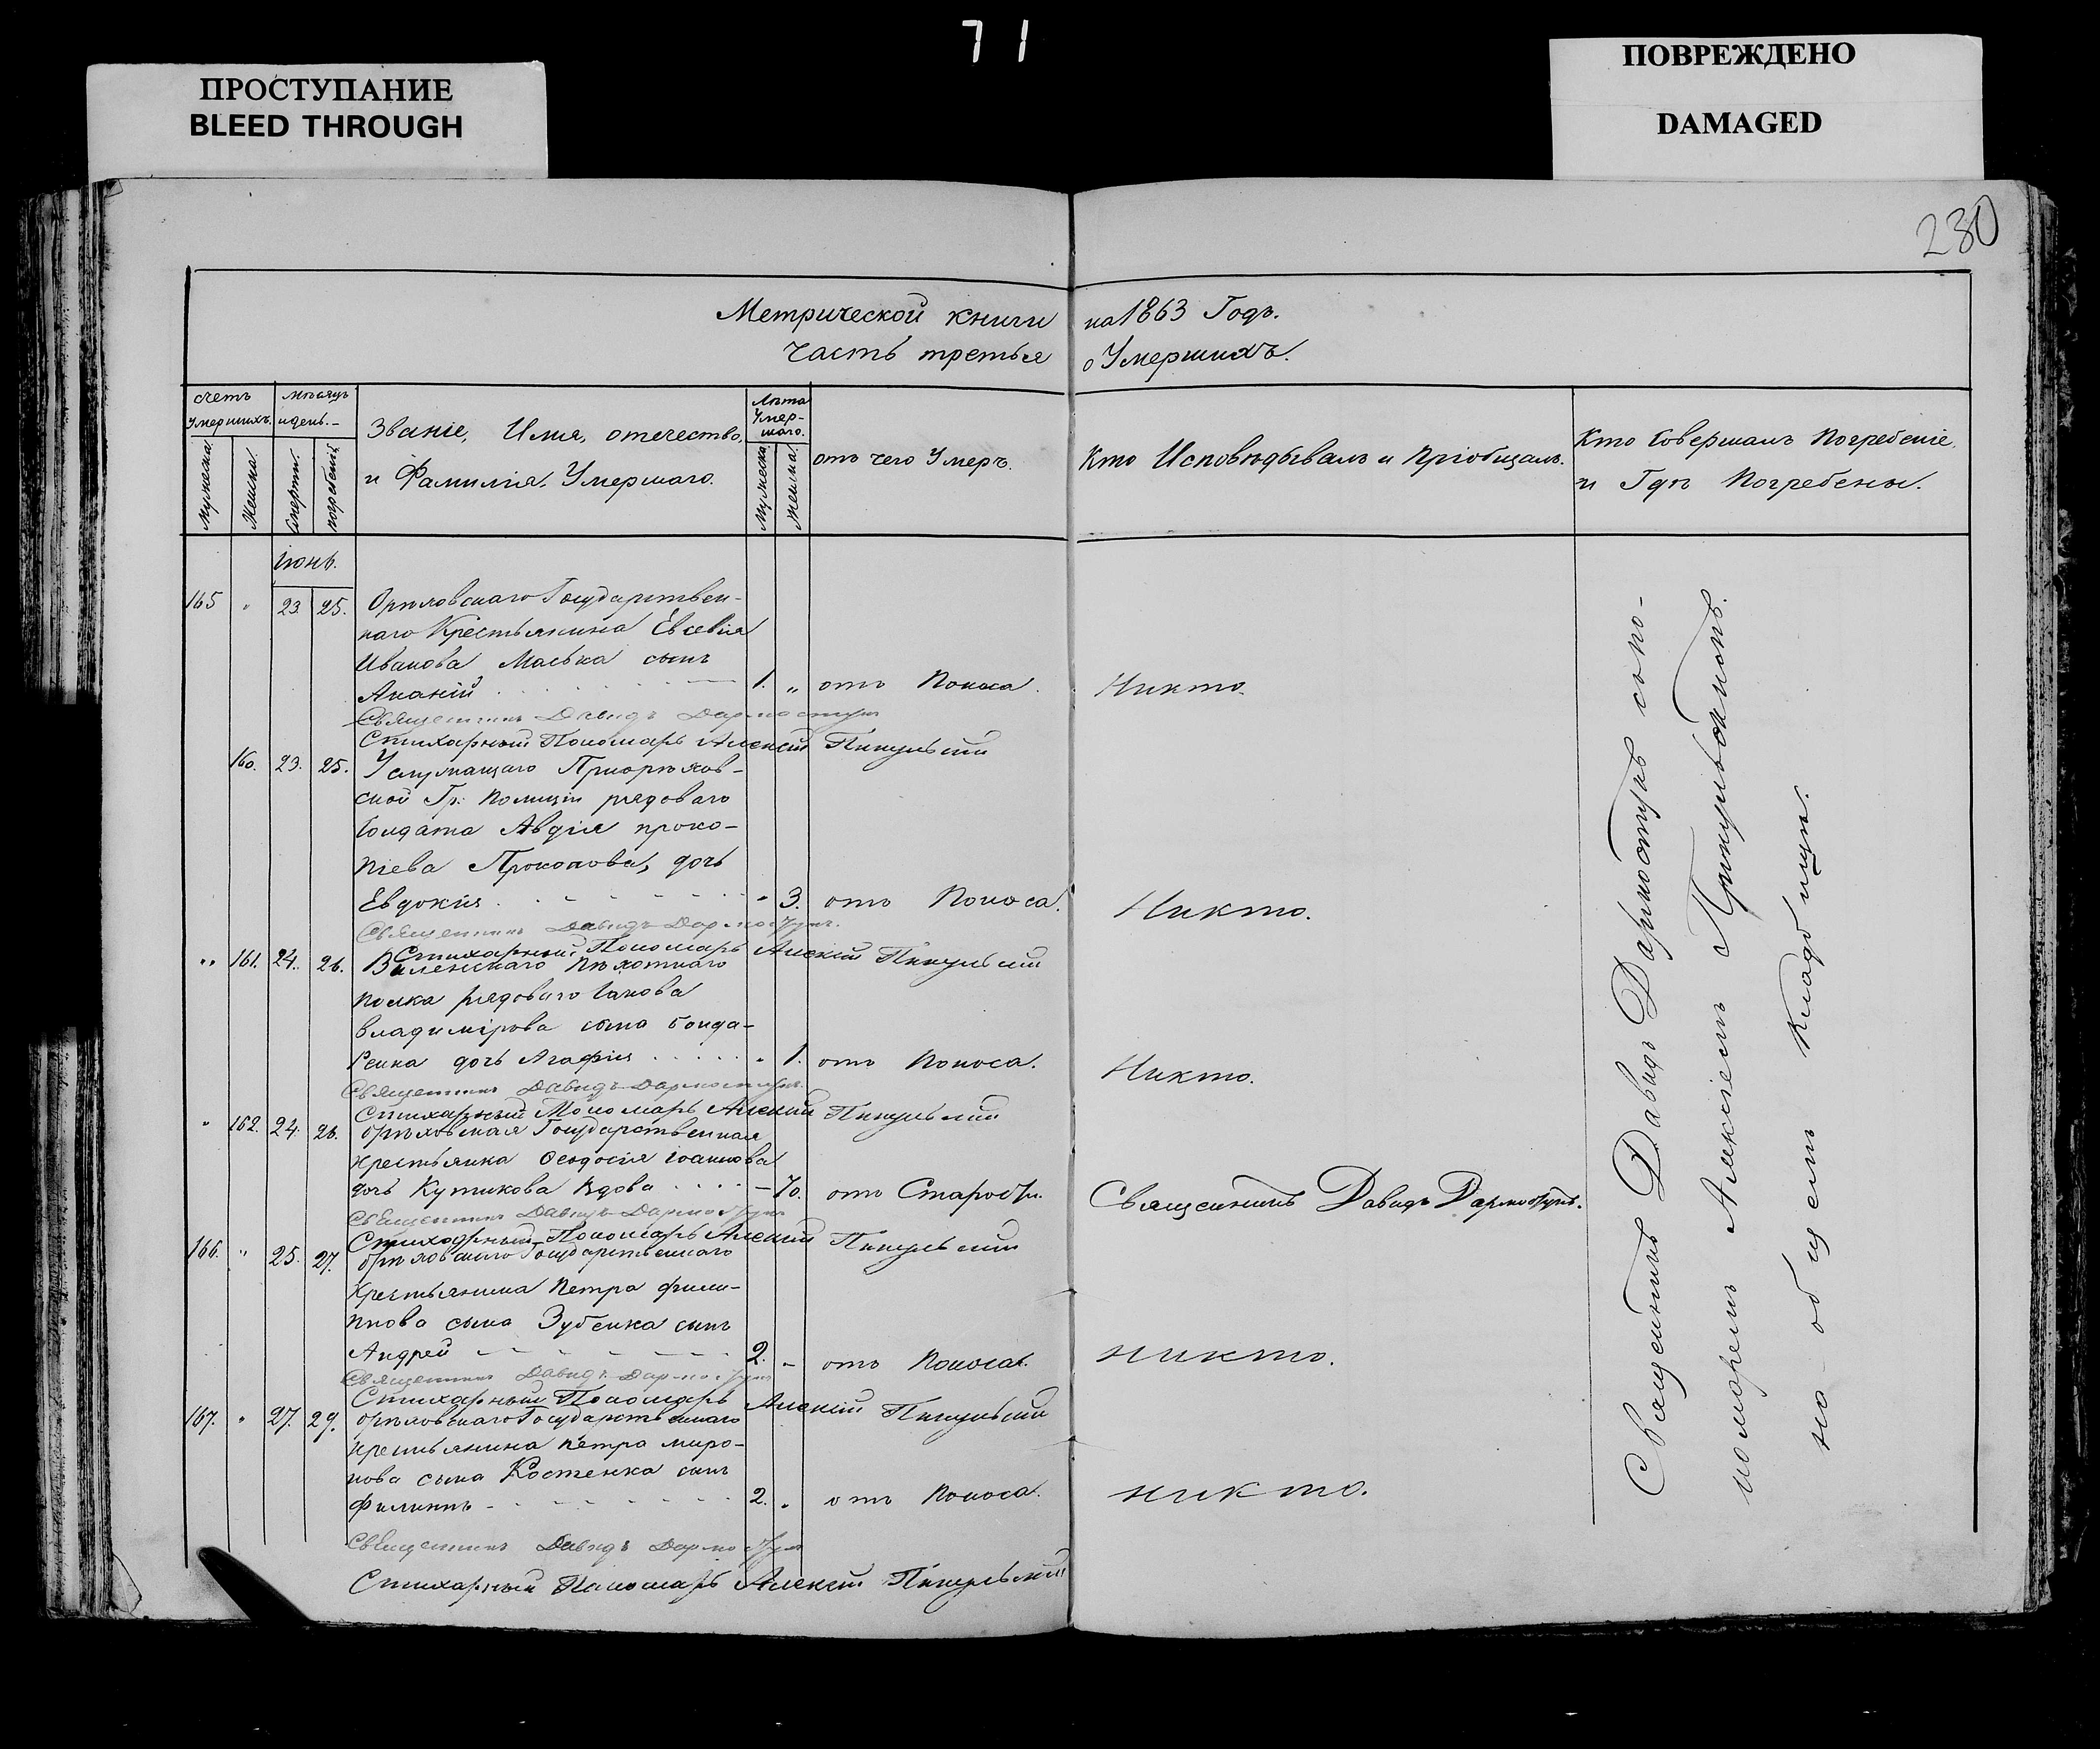 71
ПРОСТУПАНИЕ
BLEED THROUGH
ПОВРЕЖДЕНО
DAMAGED
230
Метрической книги на 1863 Годъ.
Часть третья о Умершихъ.
Счетъ Умершихъ.
Мужеска.
Женска.
Мѣсяцъ и день.
Смерти.
погребенія
Званіе, Имя, отечество,
и Фамилія, Умершаго.
Лѣта Умер-
шаго.
Мужеска
Женска.
отъ чего Умеръ.
Кто Исповѣдывалъ и Пріобщалъ.
Кто Совершалъ Погребеніе
и Гдѣ Погребены.
Іюнь.
165 " 23 25. Орѣховскаго Государствен-
наго Крестьянина Евсевія
Иванова Маська сынъ
Ананій 1. " отъ Поноса. Никто.
Священникъ Давидъ Дармоступъ
Стихарный Пономарь Алексій Пикульскій
160. 23. 25. У служащаго При орѣхов-
ской Гр: Полиціи рядоваго
Солдата Авдія проко-
піева Прокопова, дочь
Евдокія " 3. отъ Поноса. Никто.
Священникъ Давидъ Дармоступъ.
Стихарный Пономарь Алексій Пикульскій
" 161. 24. 26. Виленскаго Пѣхотнаго
полка рядоваго Іакова
владимірова сына бонда-
Ренка дочь Агафія " 1. отъ Поноса. Никто.
Священникъ Давидъ Дармоступъ.
Стихарный Пономарь Алексій Пикульскій
" 162. 24. 26. Орѣховская Государственная
крестьянка Ѳеодосія Іоаннова
дочь Кутикова Вдова — 70. отъ Старости. Священникъ Давидъ Дармоступъ.
Священникъ Давидъ Дармоступъ
Стихарный Пономарь Алексій Пикульскій
166. " 25. 27. Орѣховскаго Государственнаго
Крестьянина Петра фили-
пова сына Зубенка сынъ
Андрей 2. " отъ Поноса. никто.
Священникъ Давидъ Дармоступъ
Стихарный Пономарь Алексій Пикульскій
167. " 27. 29. Орѣховскаго Государственнаго
крестьянина Петра миро-
нова сына Костенка сынъ
Филиппъ 2. " отъ Поноса. никто.
Священникъ Давидъ Дармоступъ
Стихарный Пономарь Алексій Пикульскій
Священникъ Давидъ Дармоступъ съ по-
номаремъ Алексіемъ Пикульскимъ
на общемъ кладбищѣ.